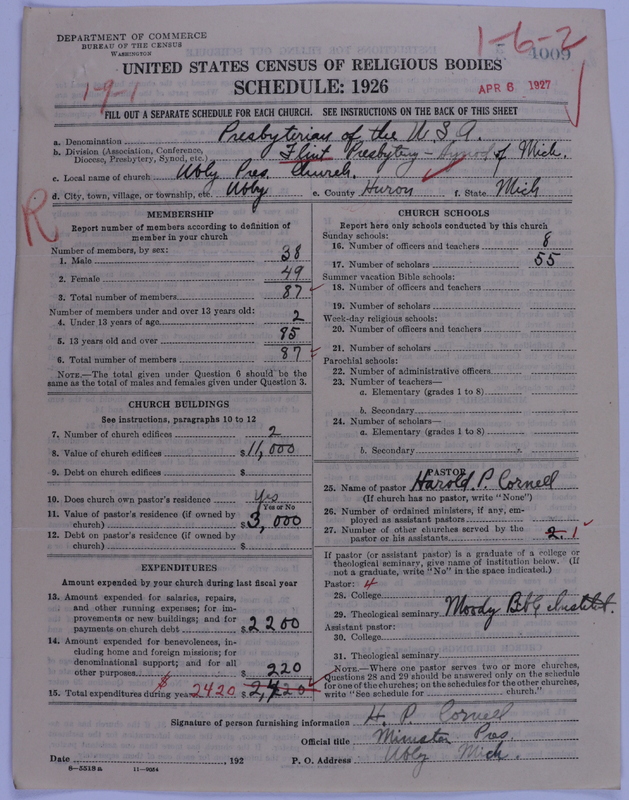 DEPARTMENT OF COMMERCE
BUREAU OF THE CENSUS
WASHINGTON
1-6-2
4009
UNITED STATES CENSUS OF RELIGIOUS BODIES
1-9-1
SCHEDULE: 1926
APR 6 1927
FILL OUT A SEPARATE SCHEDULE FOR EACH CHURCH. SEE INSTRUCTIONS ON THE BACK OF THIS SHEET
a. Denomination Presbyterian of the U.S.A.
b. Division (Association, Conference, Diocese, Presbytery, Synod, etc.) Flint Presbytery - Synod of Mich.
c. Local name of church Ubly Pres. Church.
d. City, town, village, or township, etc. Ubly e. County Huron f. State Mich
R
MEMBERSHIP
Report number of members according to definition of
member in your church
Number of members, by sex:
1. Male 38
2. Female 49
3. Total number of members 87
Number of members under and over 13 years old:
4. Under 13 years of age 2
5. 13 years old and over 85
6. Total number of members 87
NOTE.—The total given under Question 6 should be
same as the total of males and females given under Question 3.
CHURCH BUILDINGS
See instructions, paragraphs 10 to 12
7. Number of church edifices 2
8. Value of church edifices $11,000
9. Debt on church edifices $
10. Does church own pastor's residence Yes
Yes or No
11. Value of pastor's residence (if owned by
church) $3,000
12. Debt on pastor's residence (if owned by
church) $
EXPENDITURES
Amount expended by your church during last fiscal year
13. Amount expended for salaries, repairs,
and other running expenses; for im-
provements or new buildings; and for
payments on church debt $2200
14. Amount expended for benevolences, in-
cluding home and foreign missions; for
denominational support; and for all
other purposes $220
15. Total expenditures during year $2420 $2,420
CHURCH SCHOOLS
Report here only schools conducted by this church
Sunday schools:
16. Number of officers and teachers 8
17. Number of scholars 55
Summer vacation Bible schools:
18. Number of officers and teachers
19. Number of scholars
Week-day religious schools:
20. Number of officers and teachers
21. Number of scholars
Parochial schools:
22. Number of administrative officers
23. Number of teachers—
a. Elementary (grades 1 to 8)
b. Secondary
24. Number of scholars—
a. Elementary (grades 1 to 8)
b. Secondary
PASTOR
25. Name of pastor Harold P. Cornell
(If church has no pastor, write "None")
26. Number of ordained ministers, if any, em-
ployed as assistant pastors
27. Number of other churches served by the
pastor or his assistants 2. 1
If pastor (or assistant pastor) is a graduate of a college or
theological seminary, give name of institution below. (If
not a graduate, write "No" in the space indicated.)
Pastor: 4
28. College
29. Theological seminary Moody Bble Institut.
Assistant pastor:
30. College
31. Theological seminary
NOTE.—Where one pastor serves two or more churches,
Questions 28 and 29 should be answered only on the schedule
for one of the churches; on the schedules for the other churches,
write "See schedule for church."
Signature of person furnishing information H. P. Cornell
Official title Minister Pres.
Date , 192 P. O. Address Ubly Mich.
8-5518 a 11-9054